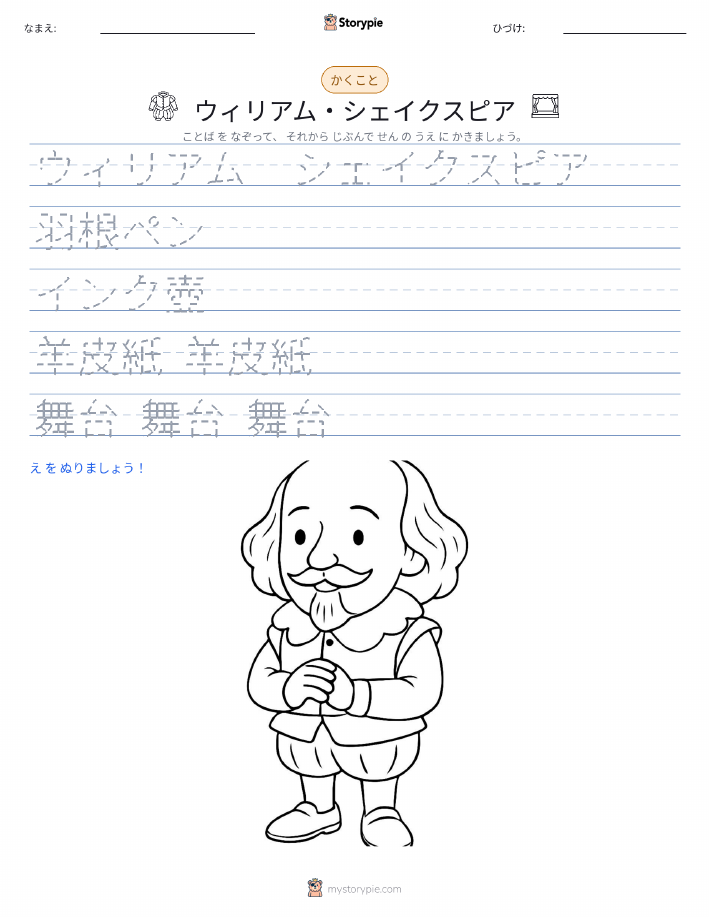 なまえ:
Storypie
ひづけ:
かくこと
ウィリアム・シェイクスピア
ことば を なぞって、 それから じぶんで せん の うえ に かきましょう。
ウィリアム シェイクスピア
羽根ペン
インク壺
羊皮紙 羊皮紙
舞台 舞台 舞台
え を ぬりましょう！
mystorypie.com